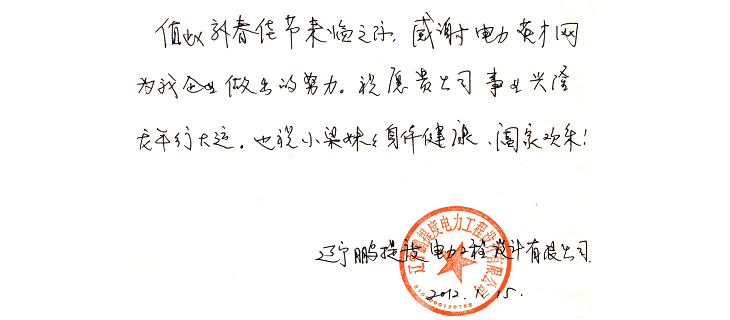 值此新春佳节来临之际，感谢电力英才网
为我企业做出的努力。祝愿贵公司事业兴隆
龙年行大运。也祝小梁妹妹身体健康、阖家欢乐！
辽宁鹏提度电力工程设计有限公司
辽宁鹏提度电力工程设计有限公司
2012.1.15.